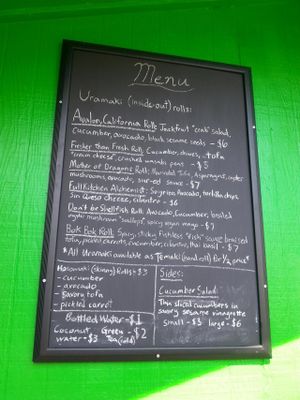 Menu
Uramaki (inside out) rolls:
Avalon, California Roll: Jackfruit "crab" salad,
cucumber, avocado, black sesame seeds - $6
Fresher than Fresh Roll: Cucumber, chives, tofu
"cream cheese", crushed wasabi peas - $5
Mother of Dragons Roll: Tofu, Asparagus, oyster
mushrooms, avocado, sauce - $7
Full Kitchen Alchemist: Avocado, tortilla chips,
Sin Queso cheese, cilantro - $6
Don't be Shellfish Roll: Avocado, Cucumber, broiled
oyster mushroom "scallops", spicy vegan mayo - $7
Bok Bok Roll: Spicy, sticky Fishless "fish" sauce braised
tofu, pickled carrots, cucumber, cilantro, thai basil - $7
* All Uramaki available as Temaki (hand roll) for 1/2 price *
Hosomaki (skinny) Rolls - $3
- cucumber
- avocado
- tofu
- pickled carrot
Bottled Water - $1
Coconut water - $3
Green Tea (cold) - $2
Sides:
Cucumber Salad:
Thin sliced cucumbers in
savory sesame vinaigrette
small - $3 large - $6